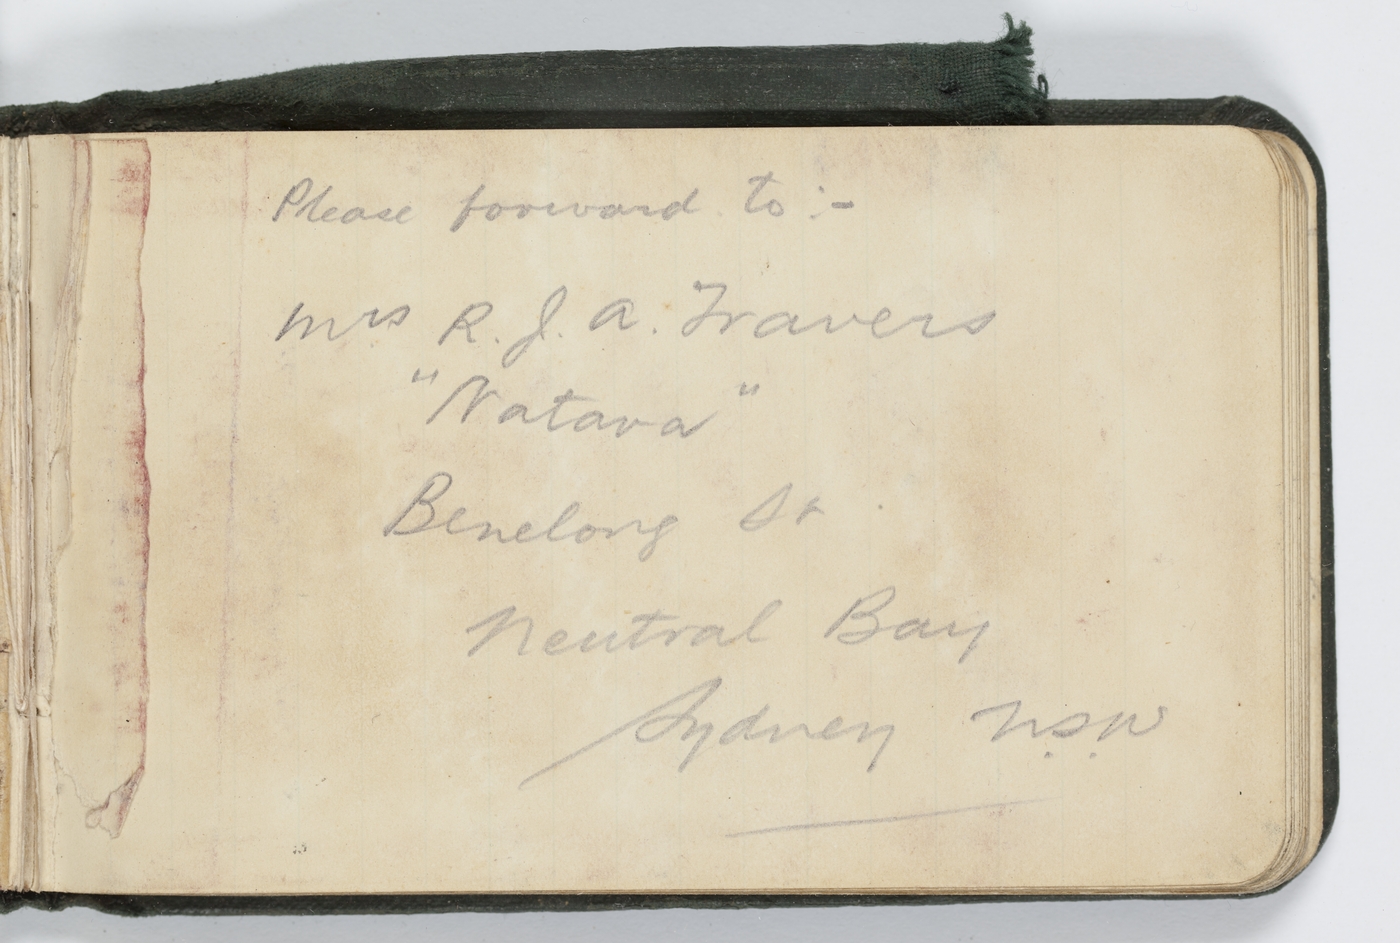 Please forward to :-
Mrs R. J. A. Travers
"Natava"
Benelong St.
Neutral Bay
Sydney N.S.W